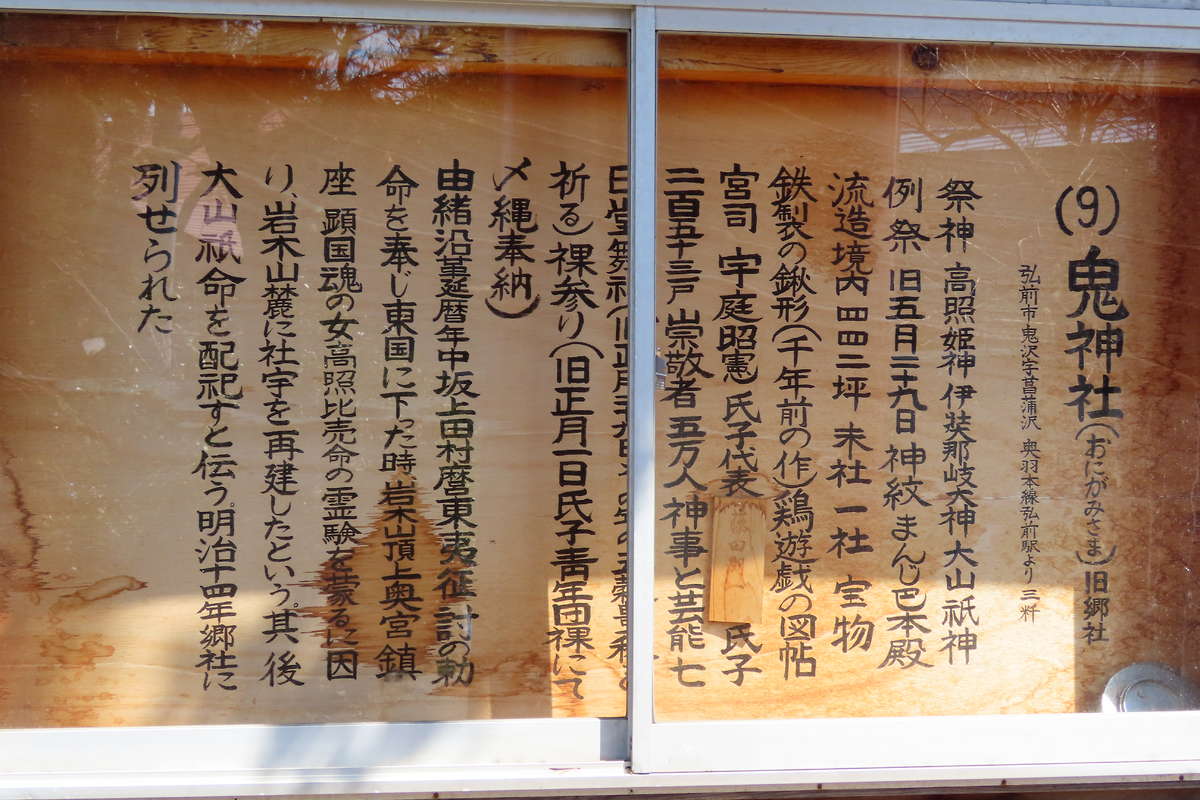 (9)鬼神社(おにがみさま)旧郷社
弘前市鬼沢字菖蒲沢 奥羽本線弘前駅より三粁
祭神 高照姫神 伊奘那岐大神 大山祇神
例祭 旧五月二十九日 神紋 まんじ巴 本殿
流造 境内四四二坪 末社 一社 宝物
鉄製の鍬形(千年前の作)鶏遊戯の図帖
宮司 宇庭昭憲 氏子代表 氏子
二百五十三戸 崇敬者 五万人 神事と芸能 七
祈る)裸参り(旧正月一日氏子青年団裸にて
〆縄奉納)
由緒沿革延暦年中坂上田村麿東夷征討の勅
命を奉じ東国に下った時、岩木山頂上奥宮鎮
座 顕国魂の女高照比売命の霊験を蒙るに因
り、岩木山麓に社宇を再建したという。其後
大山祇命を配祀すと伝う。明治十四年郷社に
列せられた